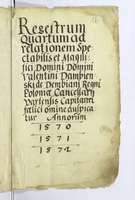 Regestrum
Quartum ad
relationem Spe
ctabilis et Magni
fici Domini Domini
Valentini Dambien
ski de Dembiani Regni
Poloniæ Cancellarÿ
Vartensis Capitanei
fœlici omine auspica
tur Annorum
1570
1571
1572